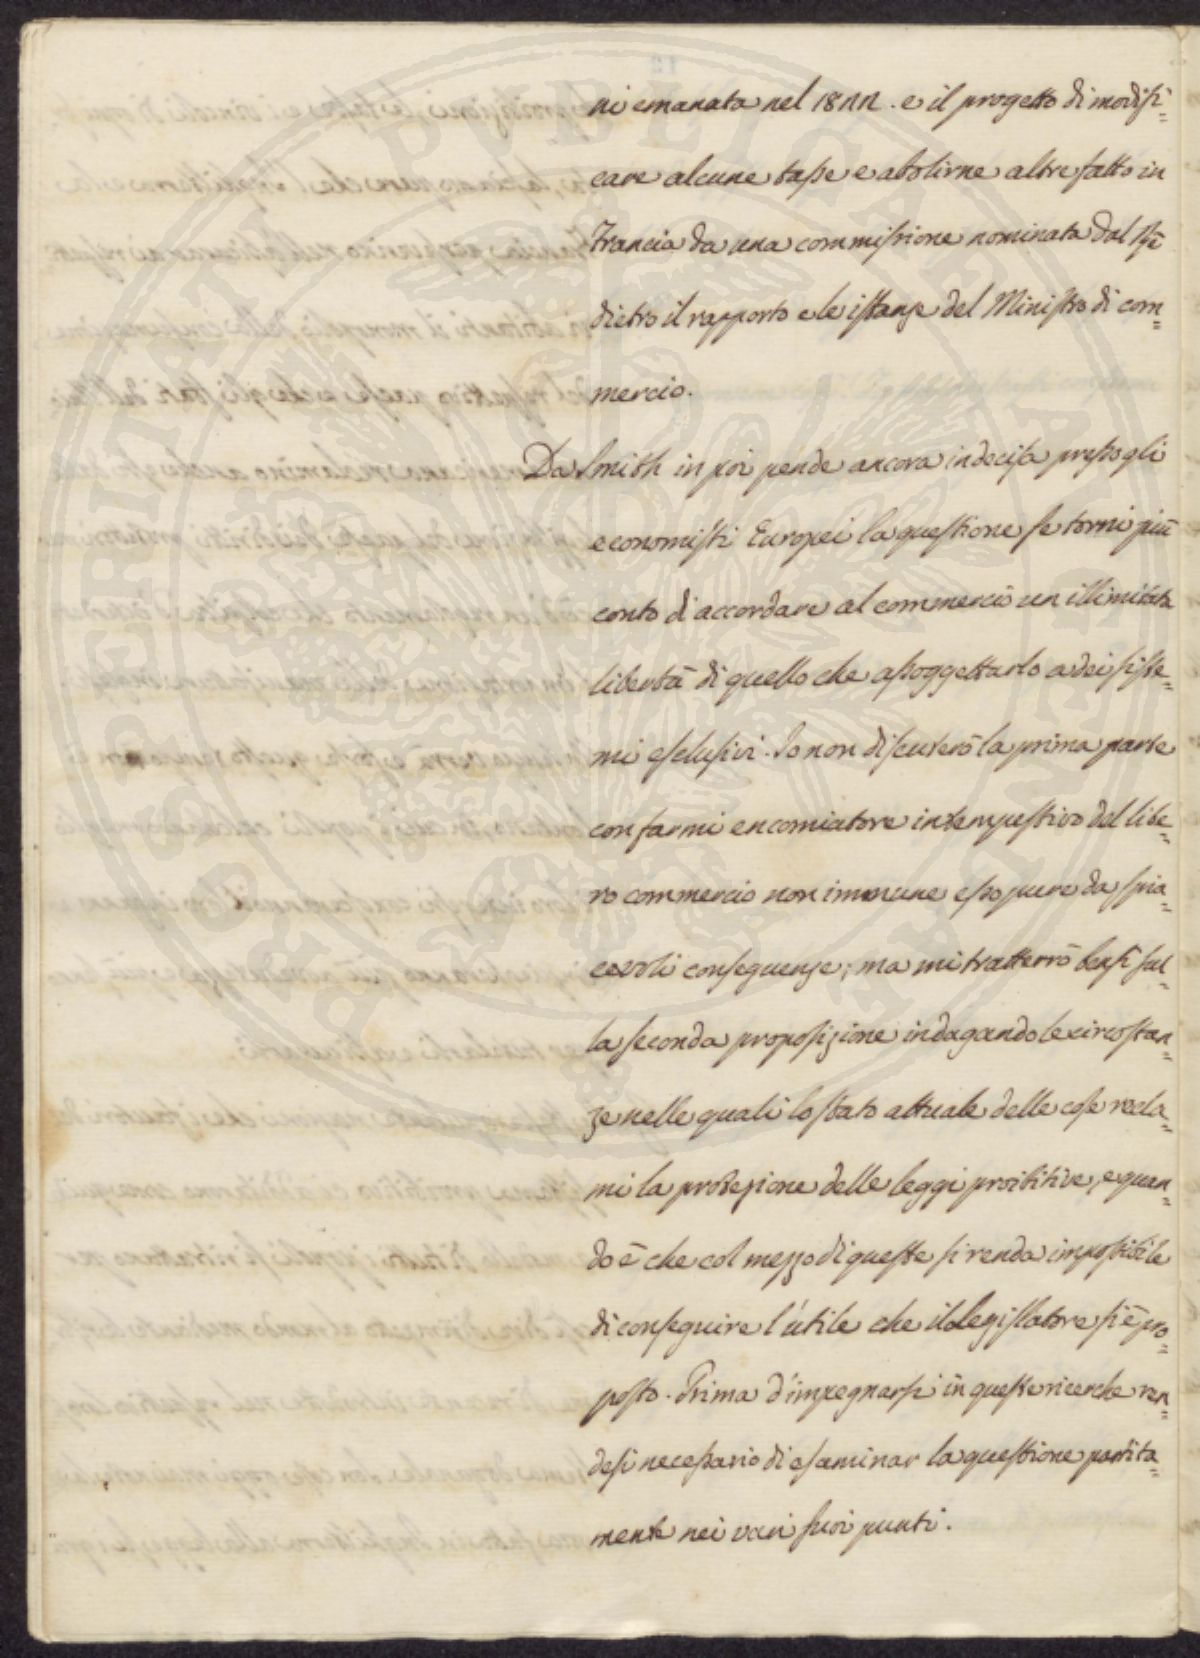 ni emanata nel 1822. e il progetto di modifi=
care alcune tasse e abolirne altre fatto in
Francia da una commissione nominata dal Rè
dietro il rapporto e le istanze del Ministro di com=
mercio.
Da Smith in poi pende ancora indecisa presso gli
economisti Europei la questione se torni più
conto di accordare al commercio un illimitata
libertà di quello che assoggettarlo a dei siste=
mi esclusivi. Io non discuterò la prima parte
con farmi encomiatore intempestivo del libe=
ro commercio non immune esso pure da spia=
cevoli conseguenze; ma mi tratterrò bensì sul=
la seconda proposizione indagando le circostan=
ze nelle quali lo stato attuale delle cose recla=
mi la protezione delle leggi proibitive, e quan=
do è che col mezzo di queste si renda impossibile
di conseguire l'utile che il Legislatore si è pro=
posto. Prima d'impegnarsi in queste ricerche ren=
desi necessario di esaminar la questione partita=
mente nei vari suoi punti.
PROSPERITATI PUBLICAE AUGENDAE